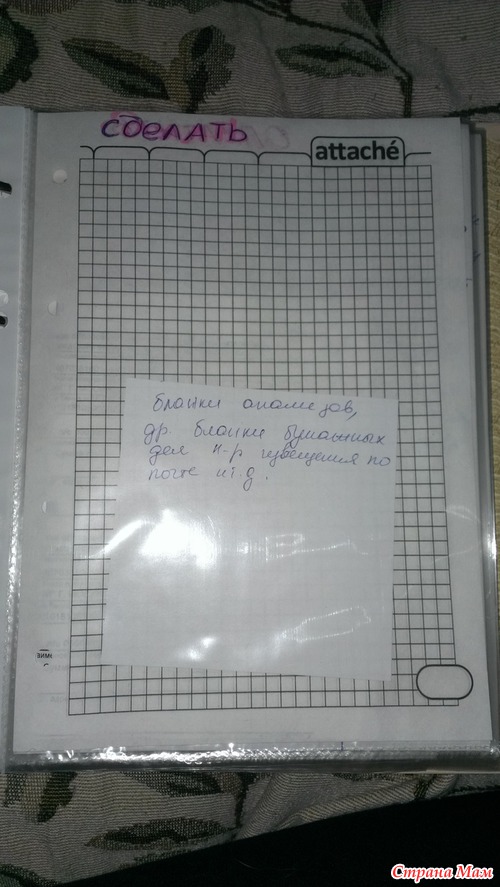 сделать
attaché
бланки анализов,
др. бланки бумажных
дел н-р извещения по
почте и т.д.
Страна Мам